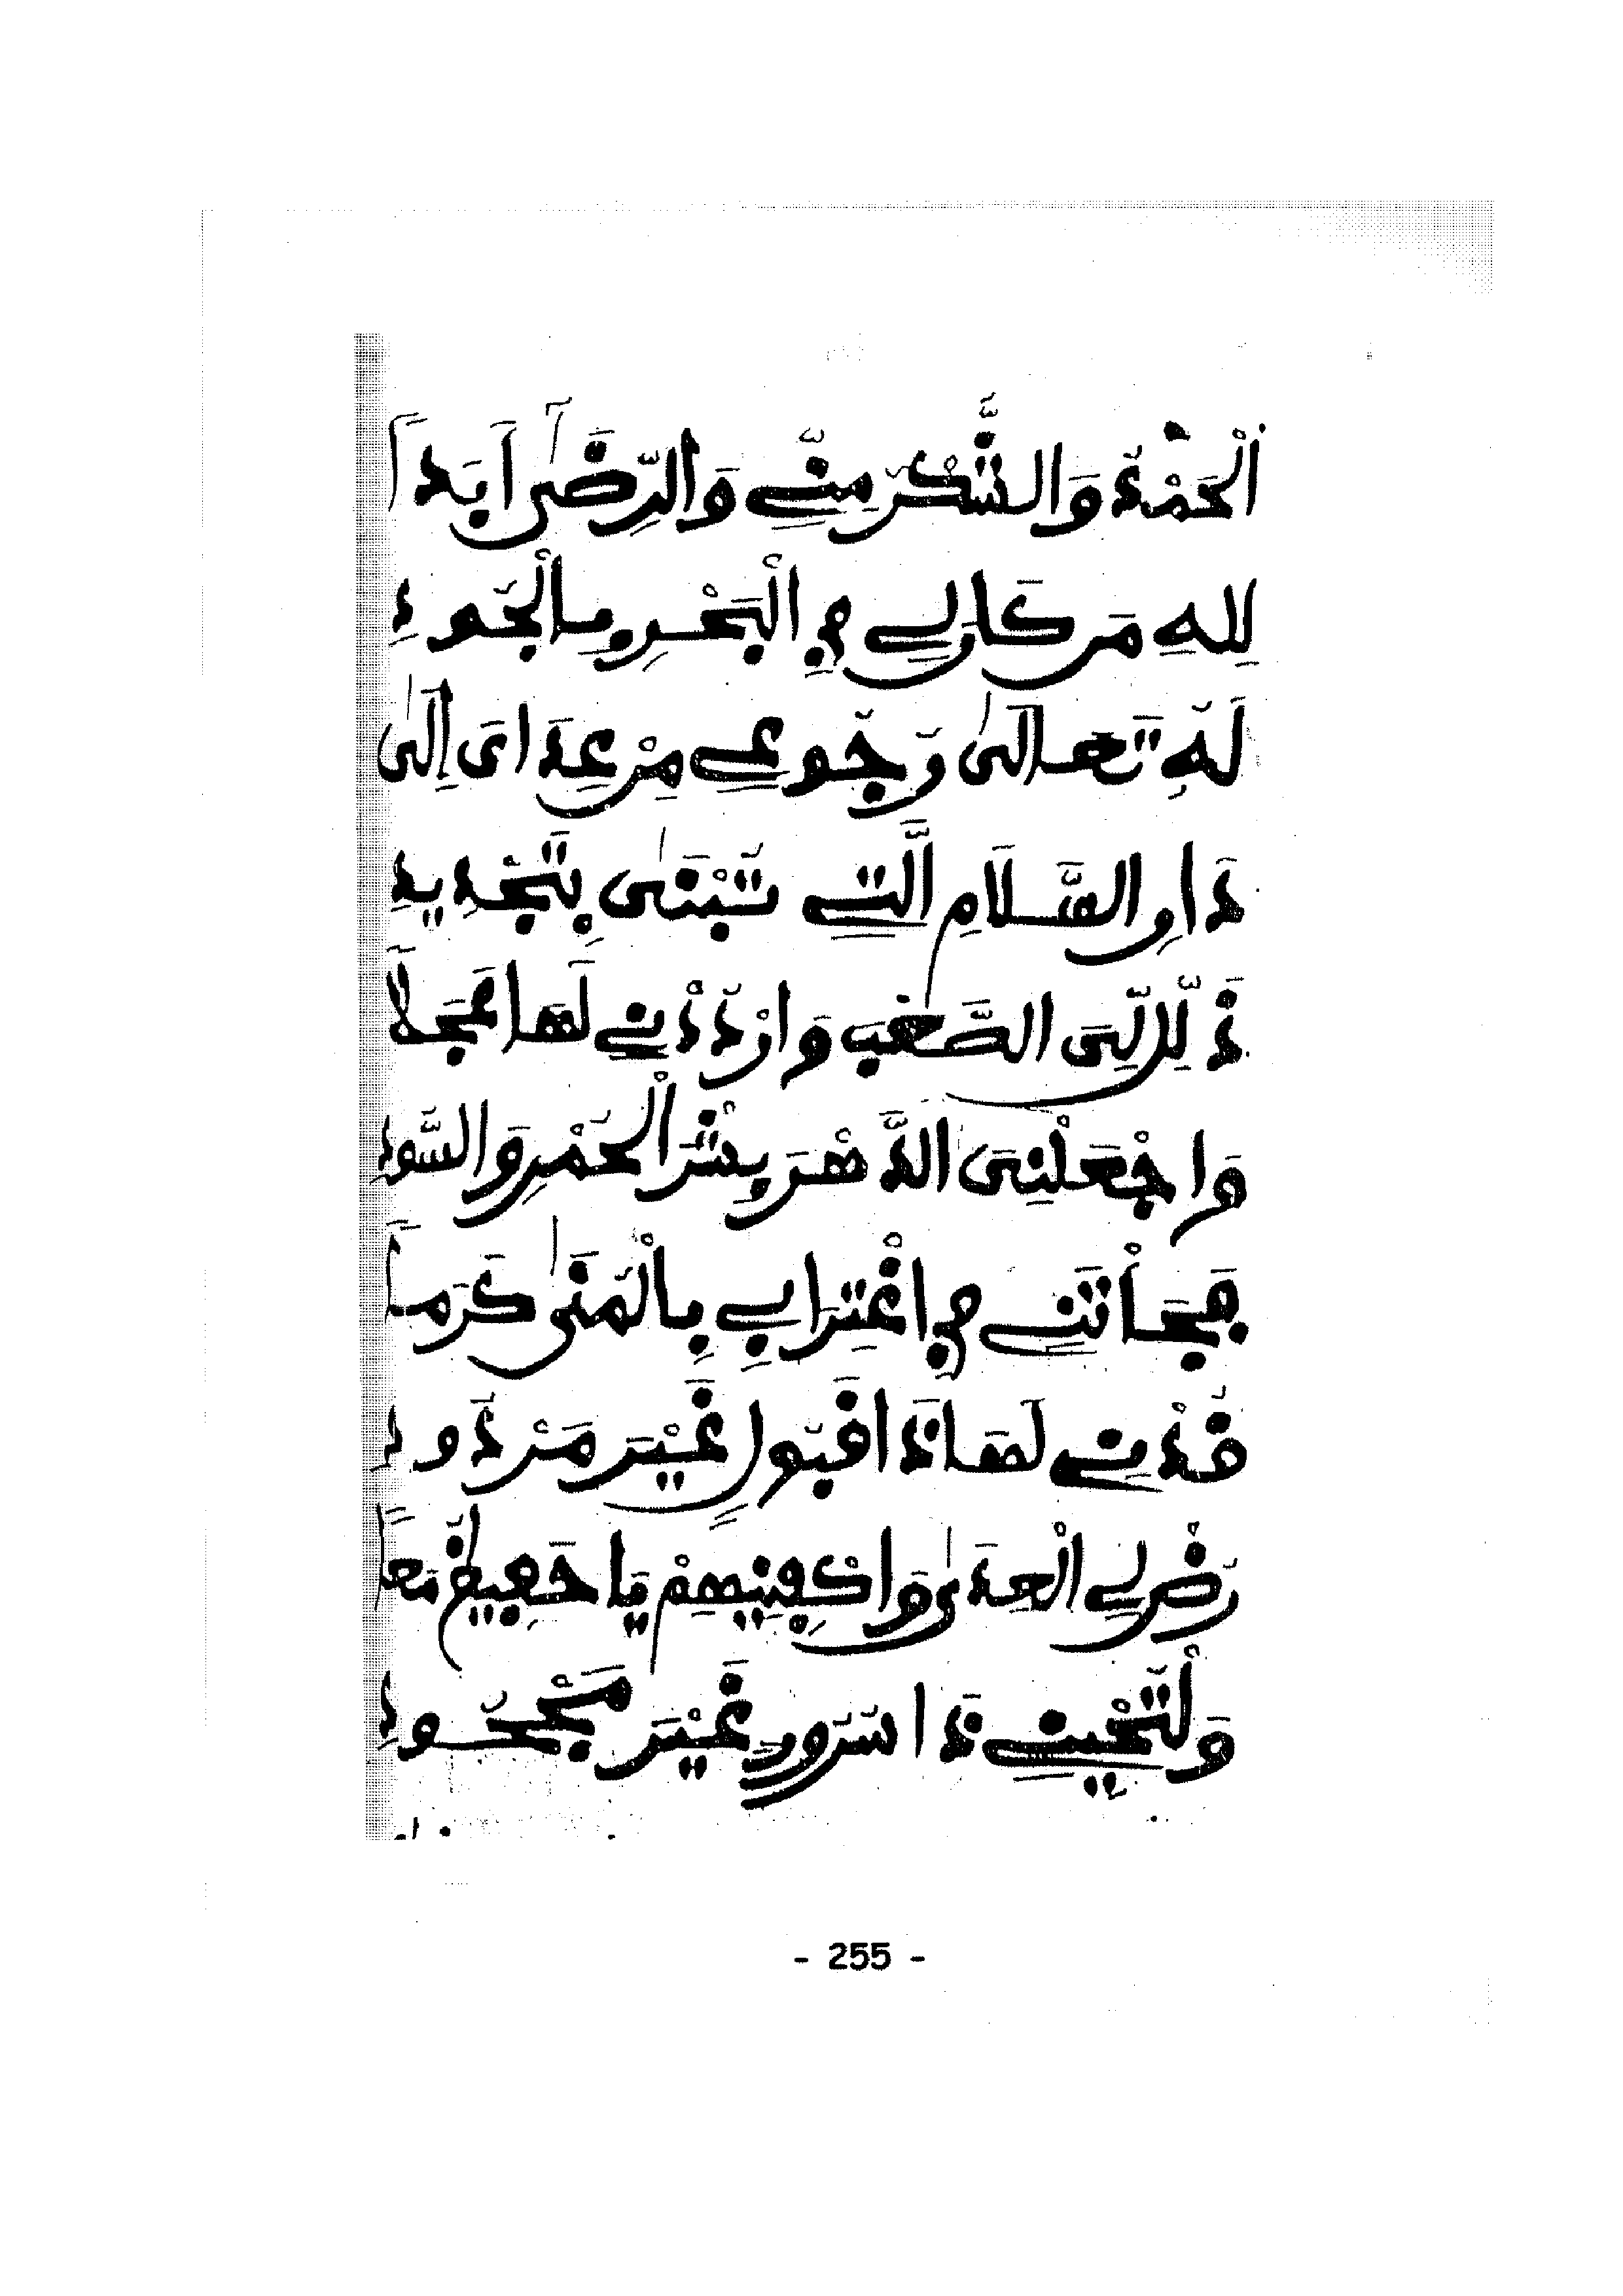 اَلْحَمْدُ وَالشُّكْرُ مِنِّي وَالرِّضَى أَبَدًا
لِلهِ مَن كَان لِي فِي الْبَحْرِ بِالْجُودِ
لَهُ تَعَالَى وُجُوعِي مِنْ عِدَاىَ إِلَى
دَارِ السَّلَامِ الَّتِي تُبْنَى بِتَجْدِيدِ
ذَلِّل لِيَ الصَّعْبَ وَازْدُدْنِي لَهَا عَجَلًا
وَاجْعَلْنِيَ الدَّهْرَ بِشْرَ الْحُمْرِ وَالسُّودِ
فَجَأْتَنِي فِي اغْتِرَابِي بِالْمُنَى كَرَمًا
قُدْنِي لَهَا ذَا قَبُولٍ غَيْرَ مَرْدُودِ
رُضْ لِي الْعِدَى وَاكْفِنِيهِمْ يَا حَفِيظُ مَعًا
وَلْتُحْيِنِي ذَا سُرُورٍ غَيْرَ مَجْحُودِ
- 255 -